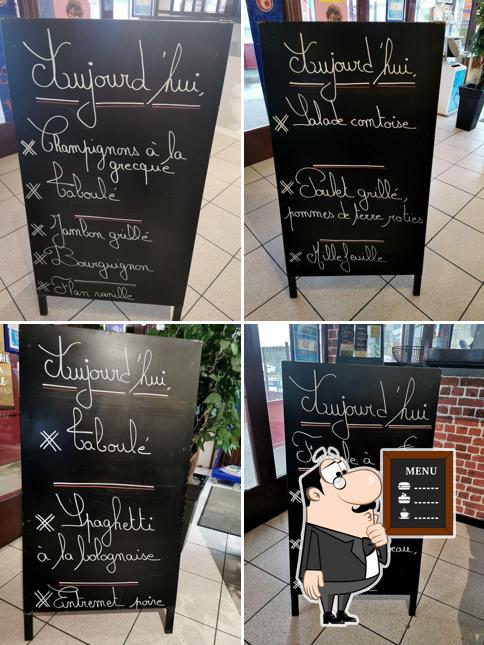 Aujourd'hui,
Champignons à la
grecque
Taboulé
Jambon grillé
Bourguignon
Flan vanille
Aujourd'hui,
Salade comtoise
Poulet grillé,
pommes de terre roties
Millefeuille
Aujourd'hui,
Taboulé
Spaghetti
à la bolognaise
Entremet poire
Aujourd'hui
MENU